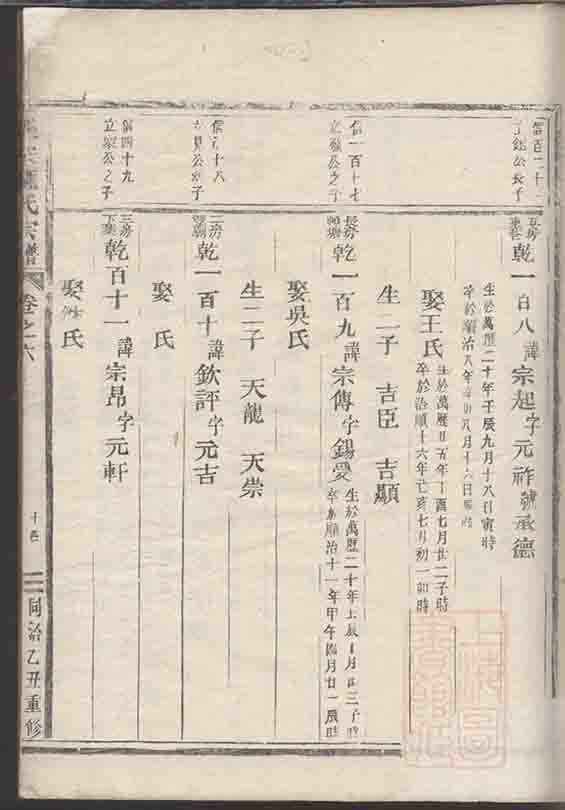 信百二十
公長子
五房
乾一百八諱宗起字元祚號承德
生於萬歷二十年壬辰九月十八日寅時
卒於順治八年辛卯八月十六日
娶王氏
生於萬歷廿五年丁酉七月廿二子時
卒於治順十六年亡亥七月初一卯時
生二子 吉臣 吉顯
信一百十七
立 公之子
長房
乾一百九諱宗傳字錫爻
生於萬歷二十年壬辰十月廿三子時
卒於順治十一年甲午四月廿一辰時
娶吳氏
生二子 天龍 天崇
信 十八
公 子
二房
乾一百十諱欽評字元吉
娶 氏
信四十九
立 公之子
三房
下集
乾百十一諱宗昂字元軒
娶 氏
氏宗譜
卷之六
同治乙丑重修
上海圖
書館藏